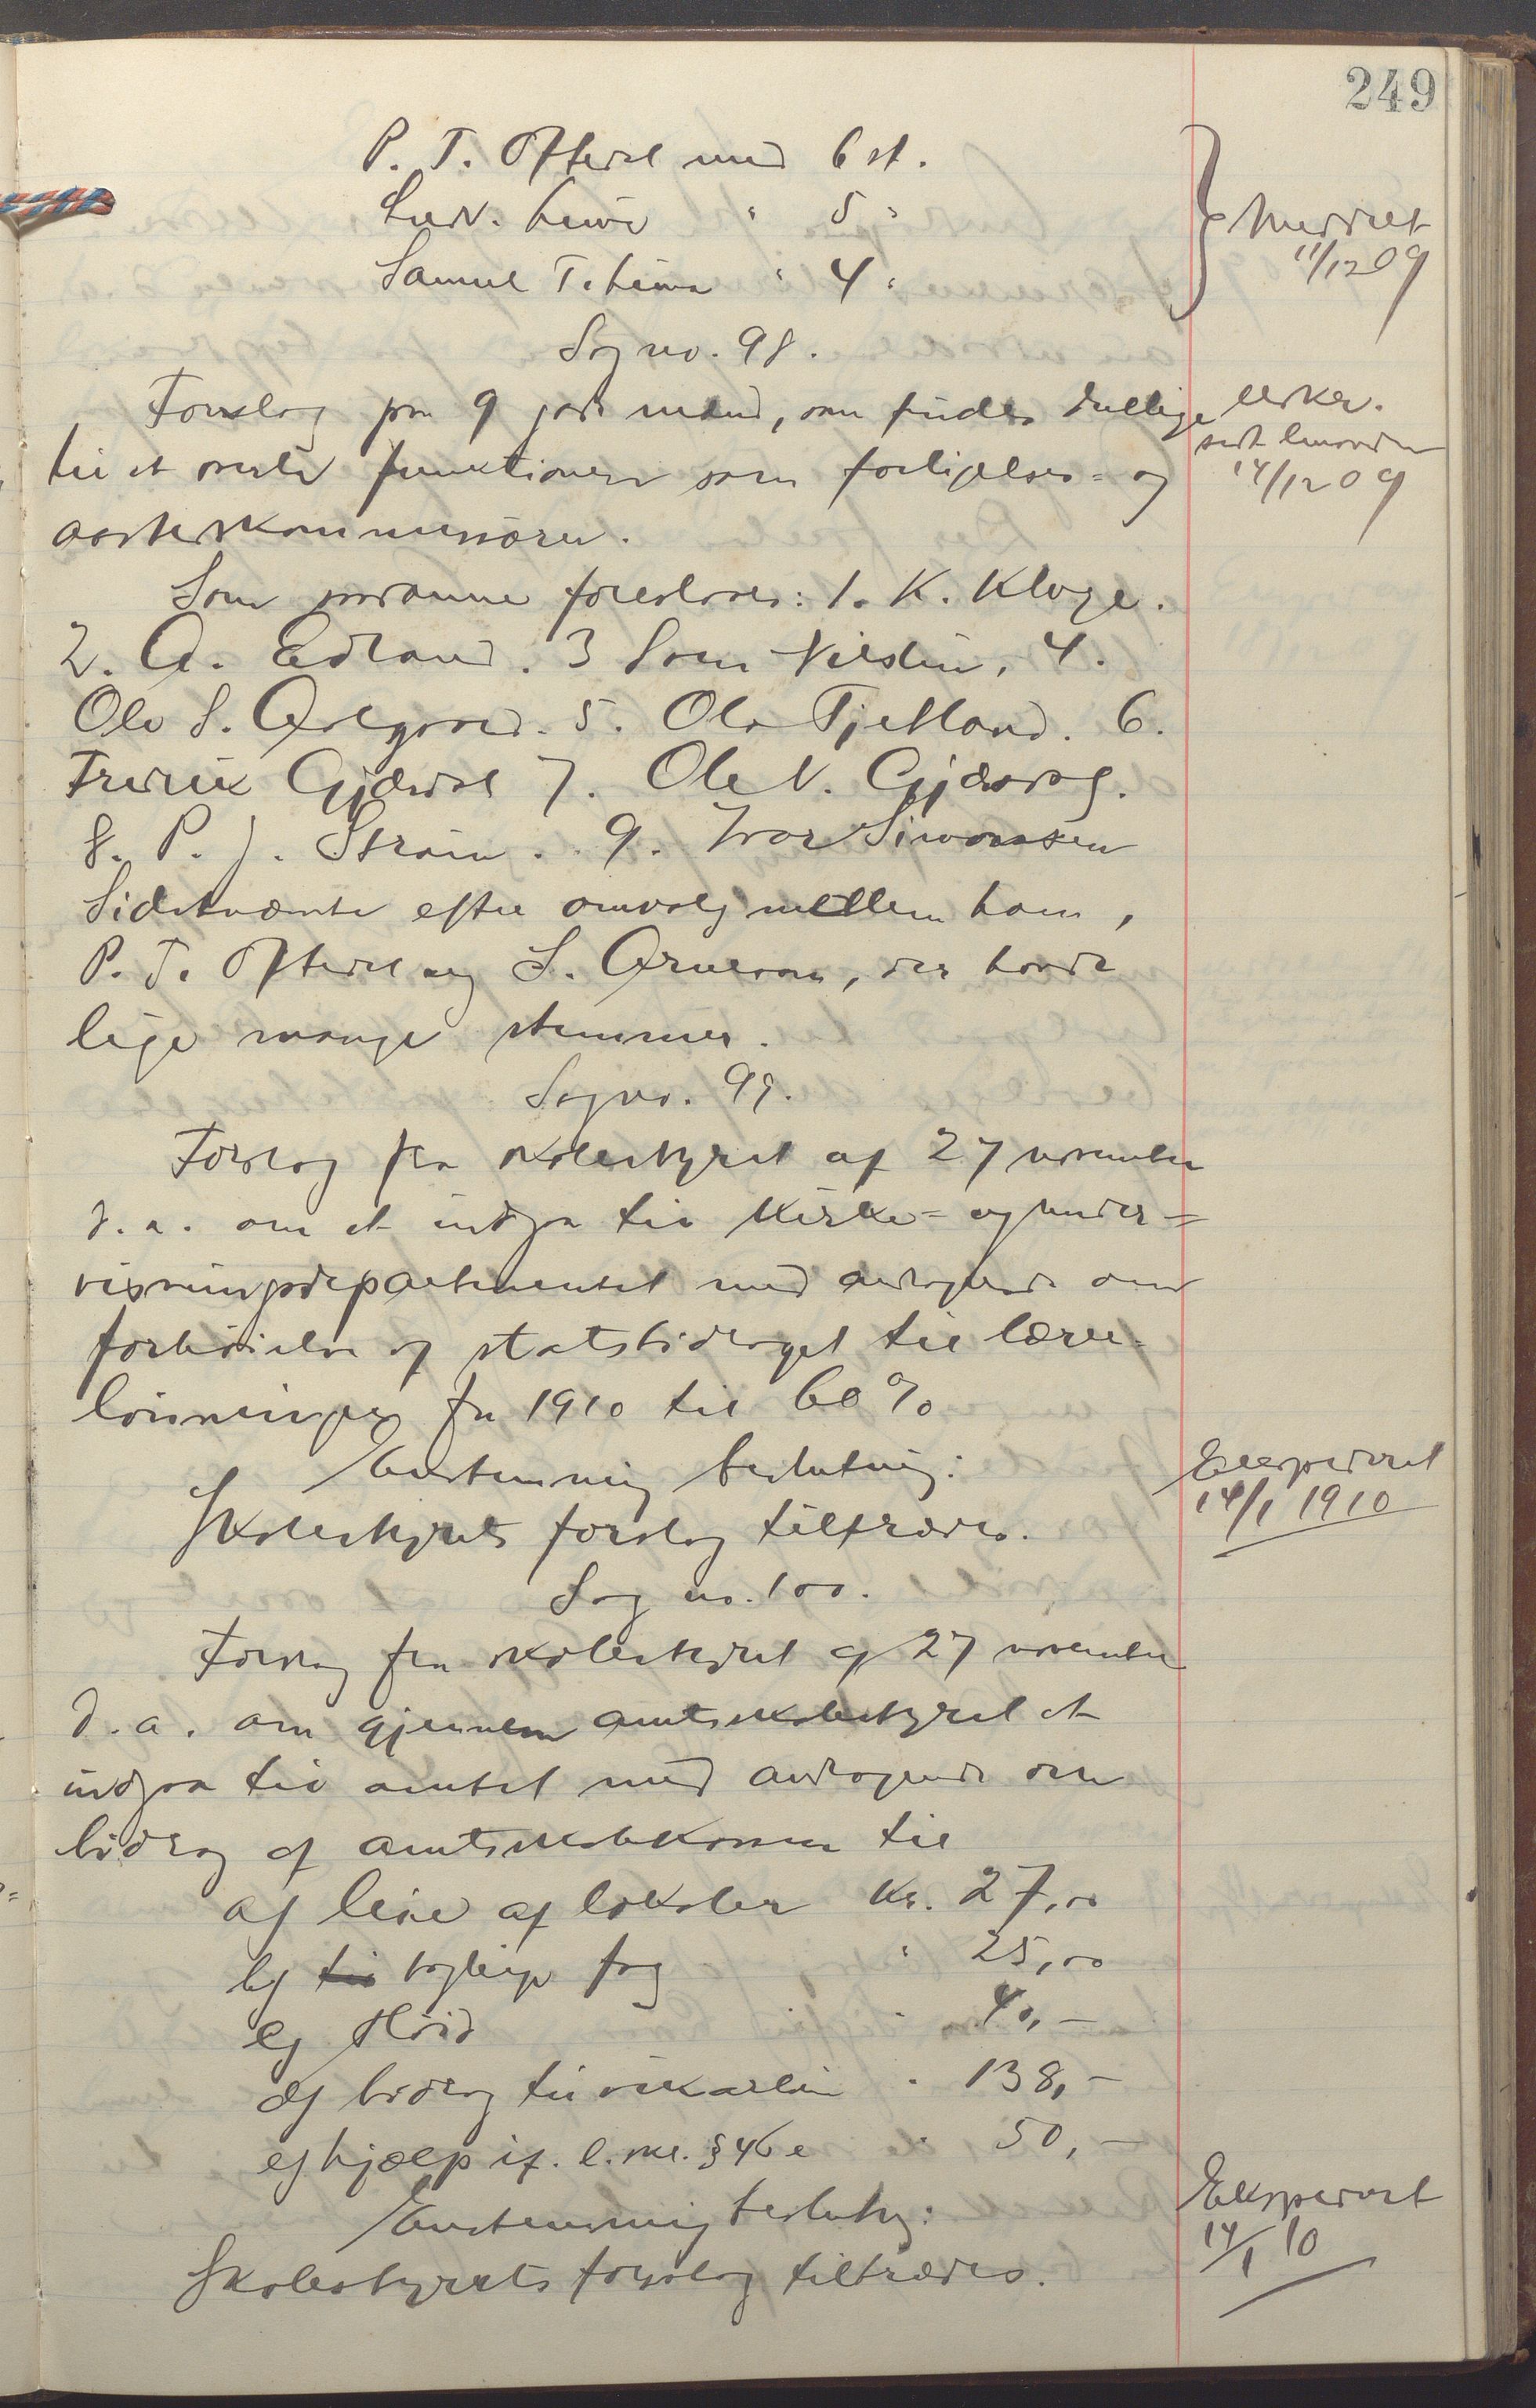 249
P. T. Oftedal med 6 st.
Ludv. Lima " 5 "
Samuel T. Lima " 4 "
Meddelt
11/12 09
Sag no. 98.
Forslag paa 9 gode mænd, som findes duelige
til at være funktionærer som forligelses- og
aastedskommissærer.
14/12 09
Som saadanne foreslaaes: 1. K. Kluge.
2. A. Edland. 3 Søren Nilsen, 4.
Ole S. Aalgaard. 5. Ole Tjetland. 6.
Fredrik Gjædal 7. Ole N. Gjæsdal.
8. P. J. Strøm. 9. Ivar Sivertsen
Sidstnævnte efter omvalg mellem ham,
P. T. Oftedal og S. Arnesen, der havde
lige mange stemmer.
Sag no. 99.
Forslag fra skolestyret af 27 november
d. a. om at indgaa til kirke- og under-
visningsdepartementet med andragende om
forhøielse af statsbidraget til lærer-
lønninger for 1910 til 60 %
Enstemmig beslutning:
Skolestyrets forslag tiltrædes.
Ekspederet
14/1 1910
Sag no. 100.
Forslag fra skolestyret af 27 november
d. a. om gjennem amtsskolestyret at
indgaa til amtet med andragende om
bidrag af amtsskolekassen til
a) leie af lokaler kr. 27,00
b) til faglige fag " 25,00
c) Haand " 40,—
d) bidrag til vikarløn " 138,—
e) hjælp if. l. skl. § 46 e " 50,—
Enstemmig beslutn.:
Skolestyrets forslag tiltrædes.
Ekspederet
14/1 10